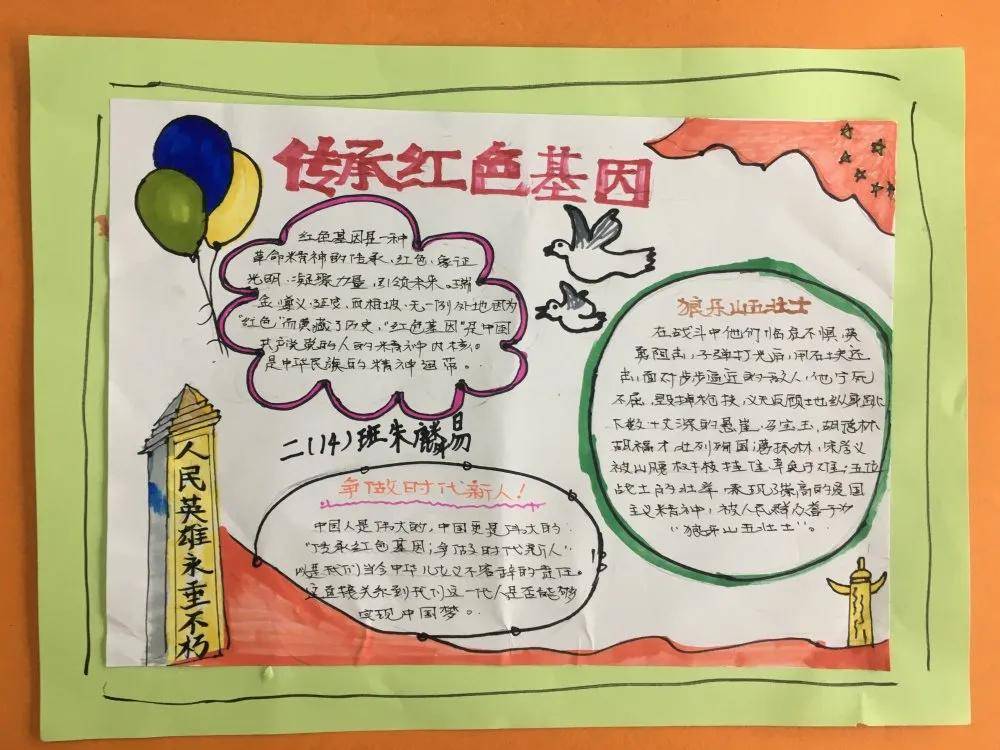 传承红色基因
红色基因是一种
革命精神的传承，红色，象征
光明，凝聚力量，引领未来。瑞
金，遵义，延安，西柏坡，无一例外地因为
“红色”而美藏了历史，“红色基因”是中国
共产党的人的精神内核。
是中华民族的精神纽带。
二（14）班朱麟易
争做时代新人！
中国人是伟大的，中国更是伟大的
“传承红色基因；争做时代新人”
以是我们当今中华儿女义不容辞的责任。
这直接关系到我们这一代人是否能够
实现中国梦。
狼牙山五壮士
在战斗中他们临危不惧，英
勇阻击，子弹打光后，用石块还
击，面对步步逼近的敌人，他宁死
不屈，毁掉枪支，义无反顾地纵身跳
下数十丈深的悬崖，马宝玉，胡德林
胡福才壮烈殉国；葛振林，宋学义
被山腰树枝挂住，幸免于难；五位
战士的壮举，表现了崇高的爱国
主义精神，被人民群众誉于为
“狼牙山五壮士”。
人民英雄永垂不朽